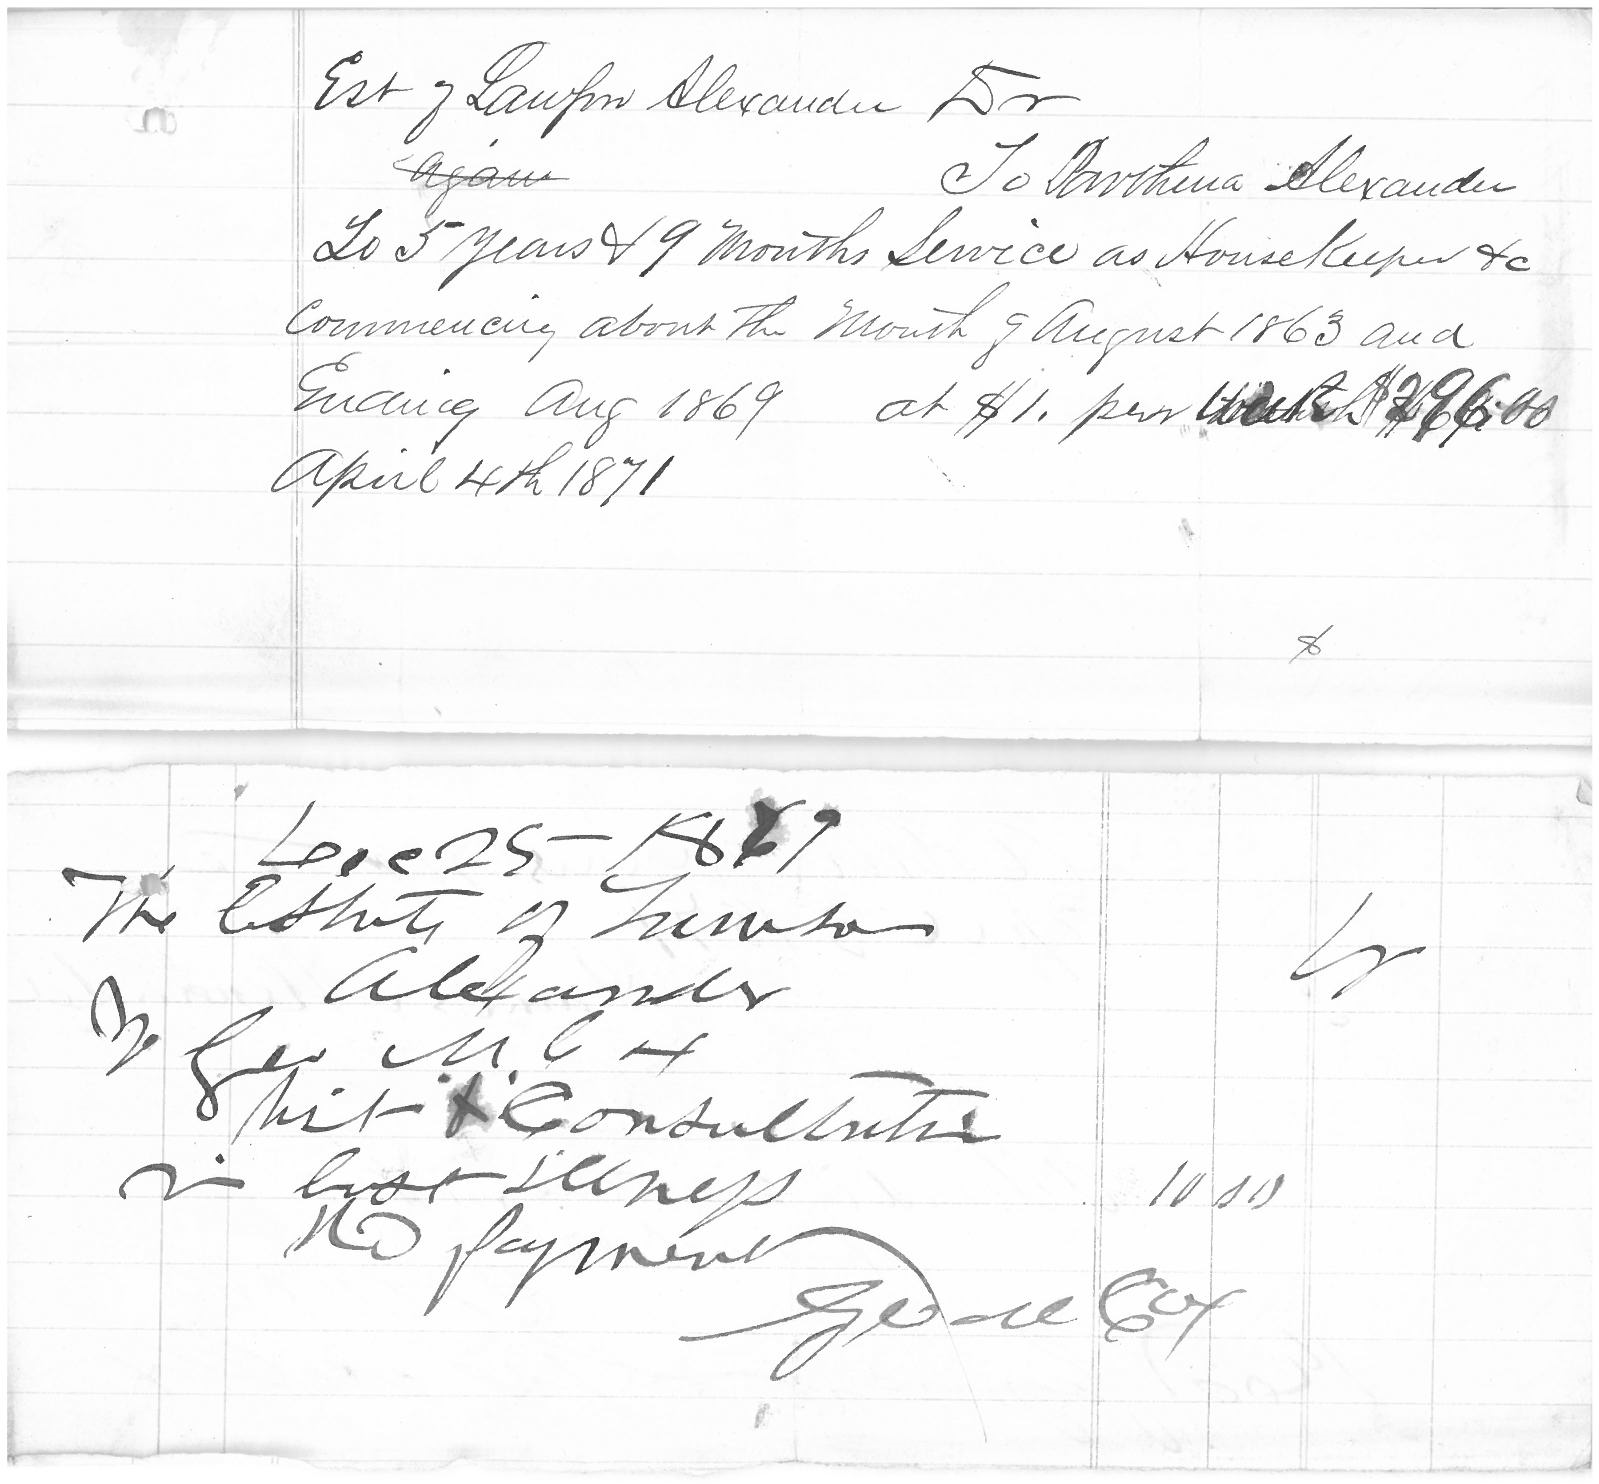 Est of Lawson Alexander Dr
Again
To Dorothena Alexander
To 5 years & 9 Months Service as HouseKeeper &c
Commencing about the Month of August 1863 and
Ending Aug 1869 at $1. per week $296.00
April 4th 1871
$
Dec 25 - 1869
The Estate of Lawson Dr
Alexander
To Geo M. Cox
Visit & Consultation
in last illness 10 00
No payment
Geo M Cox